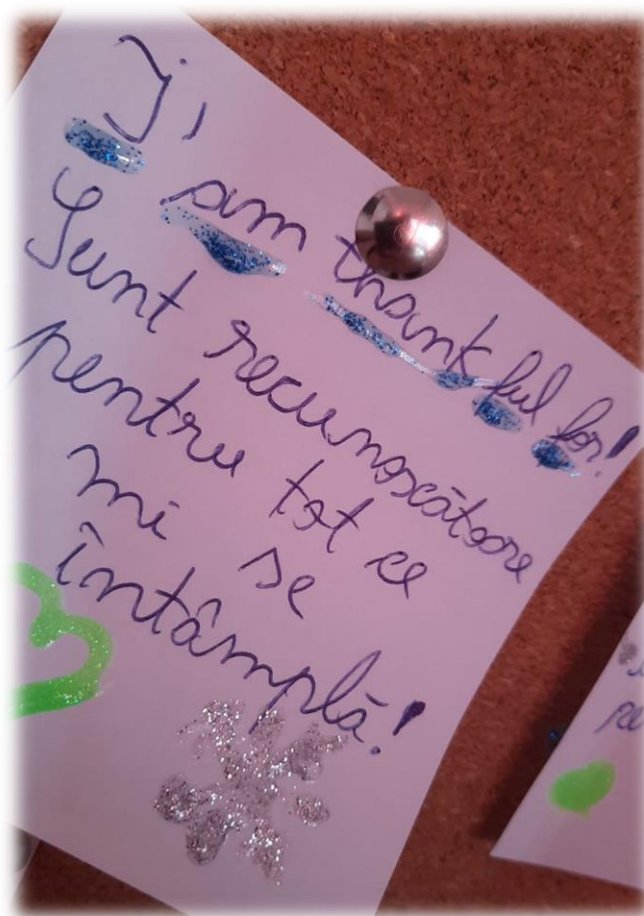 I,
am thankful for!
Sunt recunoscătoare
pentru tot ce
mi se
întâmplă!